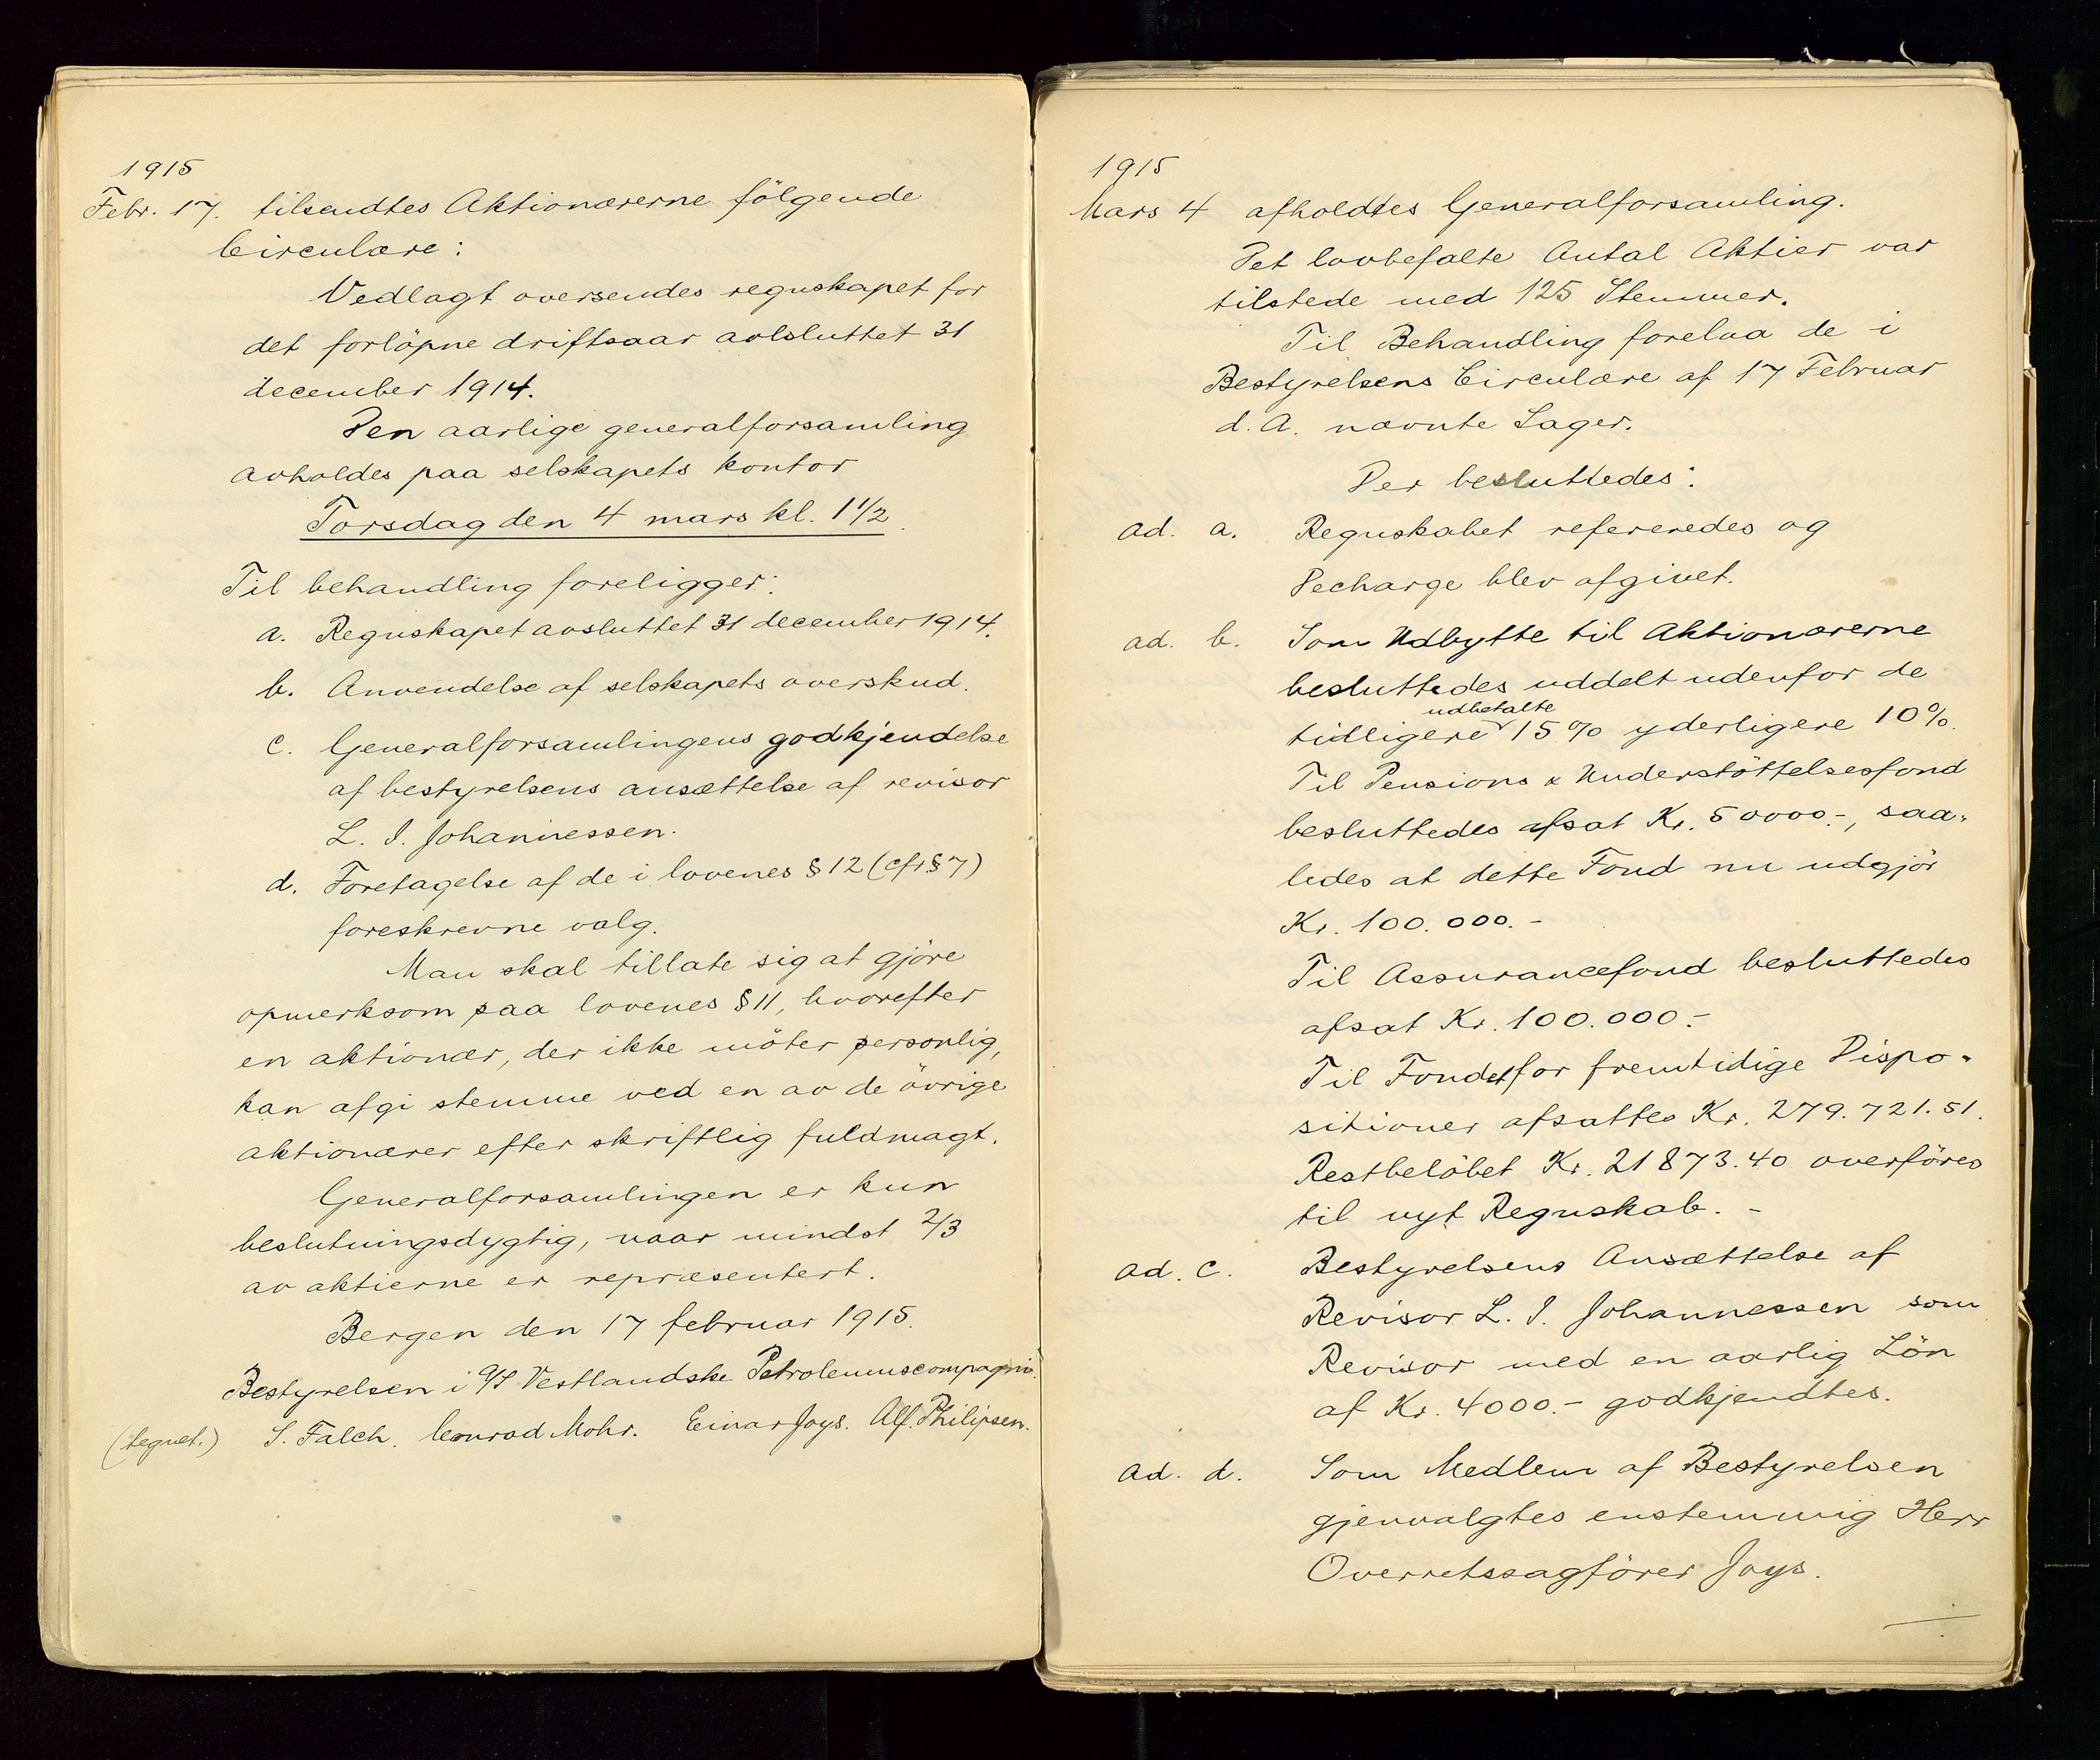 1915
Febr. 17. tilsendtes Aktionærerne fölgende
Circulære:
Vedlagt oversendes regnskapet for
det forlöpne driftsaar avlsluttet 31
december 1914.
Den aarlige generalforsamling
avholdes paa selskapets kontor
Torsdag den 4 mars kl. 1 1/2.
Til behandling foreligger:
a. Regnskapet avsluttet 31 december 1914.
b. Anvendelse af selskapets overskud.
c. Generalforsamlingens godkjendelse
af bestyrelsens ansættelse af revisor
L. I. Johannessen.
d. Foretagelse af de i lovenes § 12 (cfr § 7)
foreskrevne valg.
Man skal tillate sig at gjöre
opmerksom paa lovenes § 11, hvorefter
en aktionær, der ikke möter personlig,
kan afgi stemme ved en av de övrige
aktionærer efter skriftlig fuldmagt.
Generalforsamlingen er kun
beslutningsdygtig, naar mindst 2/3
av aktierne er repræsentert.
Bergen den 17 februar 1915.
Bestyrelsen i A/S Vestlandske Petroleumscompagni.
(tegnet.) S. Falch. Conrad Mohr. Einar Joys. Alf. Philipsen.
1915
Mars 4 afholdtes Generalforsamling.
Det lovbefalte Antal Aktier var
tilstede med 125 Stemmer.
Til Behandling forelaa de i
Bestyrelsens Circulære af 17 Februar
d. A. nævnte Sager.
Der besluttedes:
ad. a. Regnskabet refereredes og
Decharge blev afgivet.
ad. b. Som Udbytte til Aktionærerne
besluttedes uddelt udenfor de
udbetalte
tidligere 15% yderligere 10%.
Til Pensions & Understöttelsesfond
besluttedes afsat Kr. 50000.-, saa-
ledes at dette Fond nu udgjör
Kr. 100.000.-
Til Assurancefond besluttedes
afsat Kr. 100.000.-
Til Fondet for fremtidige Dispo-
sitioner afsattes Kr. 279.721.51.
Restbelöbet Kr. 21873.40 overföres
til nyt Regnskab. -
ad. c. Bestyrelsens Ansættelse af
Revisor L. I. Johannessen som
Revisor med en aarlig Lön
af Kr. 4000.- godkjendtes.
ad. d. Som Medlem af Bestyrelsen
gjenvalgtes enstemmig Herr
Overretssagförer Joys.